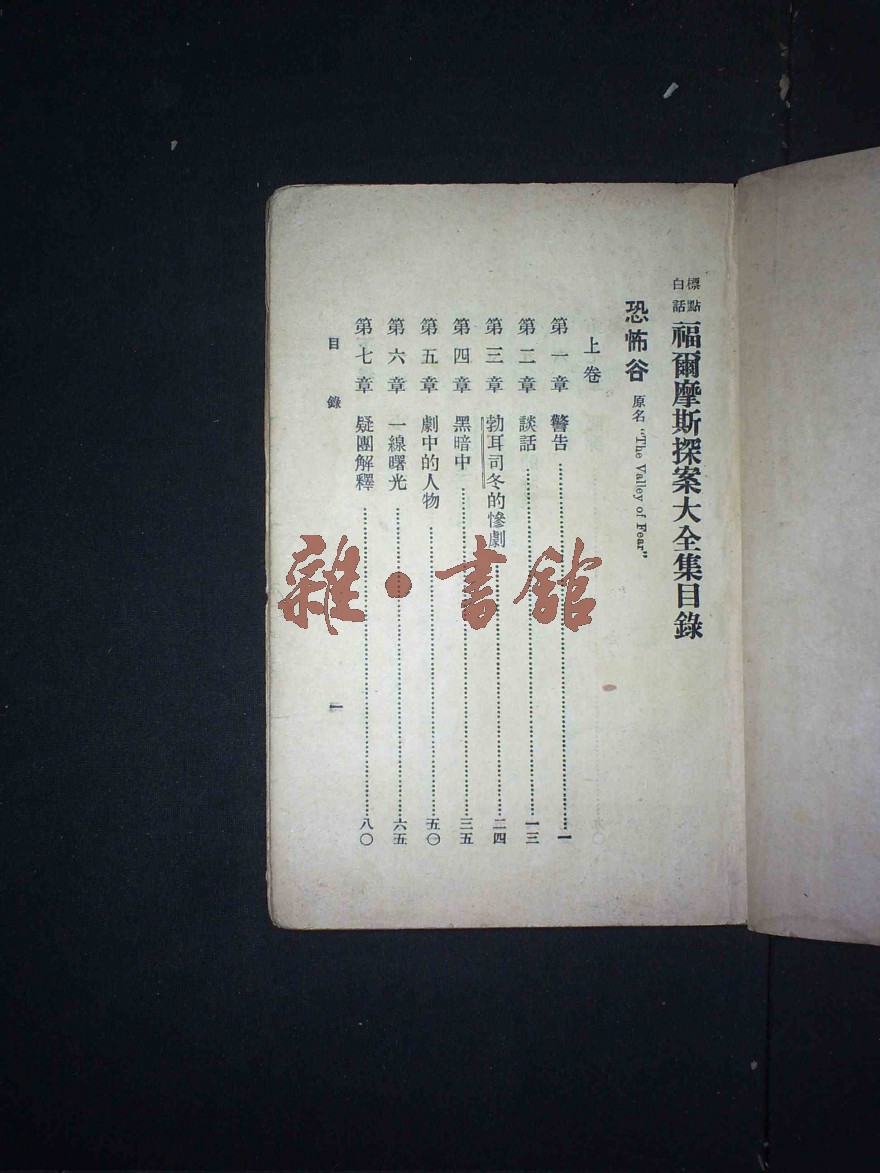 標點白話 福爾摩斯探案大全集目錄
恐怖谷 原名 "The Valley of Fear"
上卷
第一章 警告……一
第二章 談話……一三
第三章 勃耳司冬的慘劇……二四
第四章 黑暗中……三五
第五章 劇中的人物……五〇
第六章 一線曙光……六五
第七章 疑團解釋……八〇
目錄 一
雜·書館